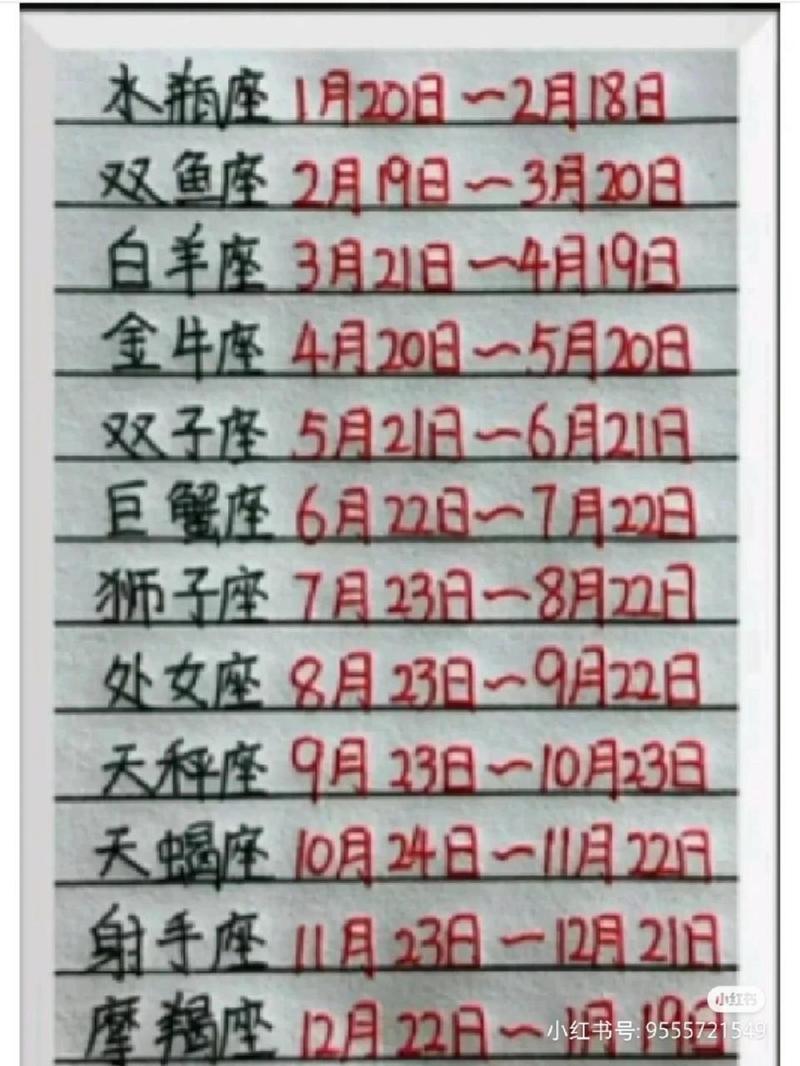 水瓶座 1月20日~2月18日
双鱼座 2月19日~3月20日
白羊座 3月21日~4月19日
金牛座 4月20日~5月20日
双子座 5月21日~6月21日
巨蟹座 6月22日~7月22日
狮子座 7月23日~8月22日
处女座 8月23日~9月22日
天秤座 9月23日~10月23日
天蝎座 10月24日~11月22日
射手座 11月23日~12月21日
摩羯座 12月22日~1月19日
小红书
小红书号: 9555721549